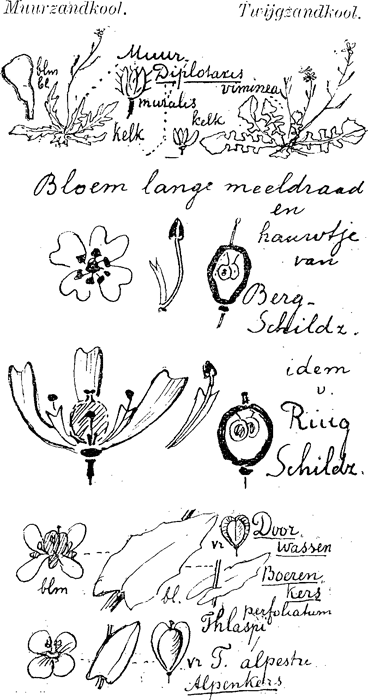 Muurzandkool.
Twijgzandkool.
Muur
blm
bl.
Diplotaxis
viminea
muralis
kelk
kelk
Bloem lange meeldraad
en
hauwtje
van
Berg-
Schildz.
idem
v.
Ruig
Schildz.
Door
wassen
vr
Boeren
kers
blm
bl.
perfoliatum
Thlaspi
vr T. alpestre
Alpenkers